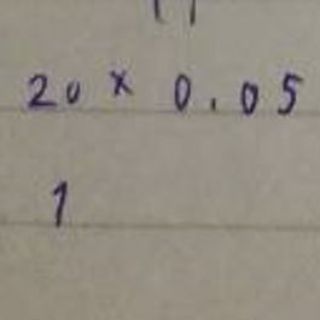 20 × 0.05
1